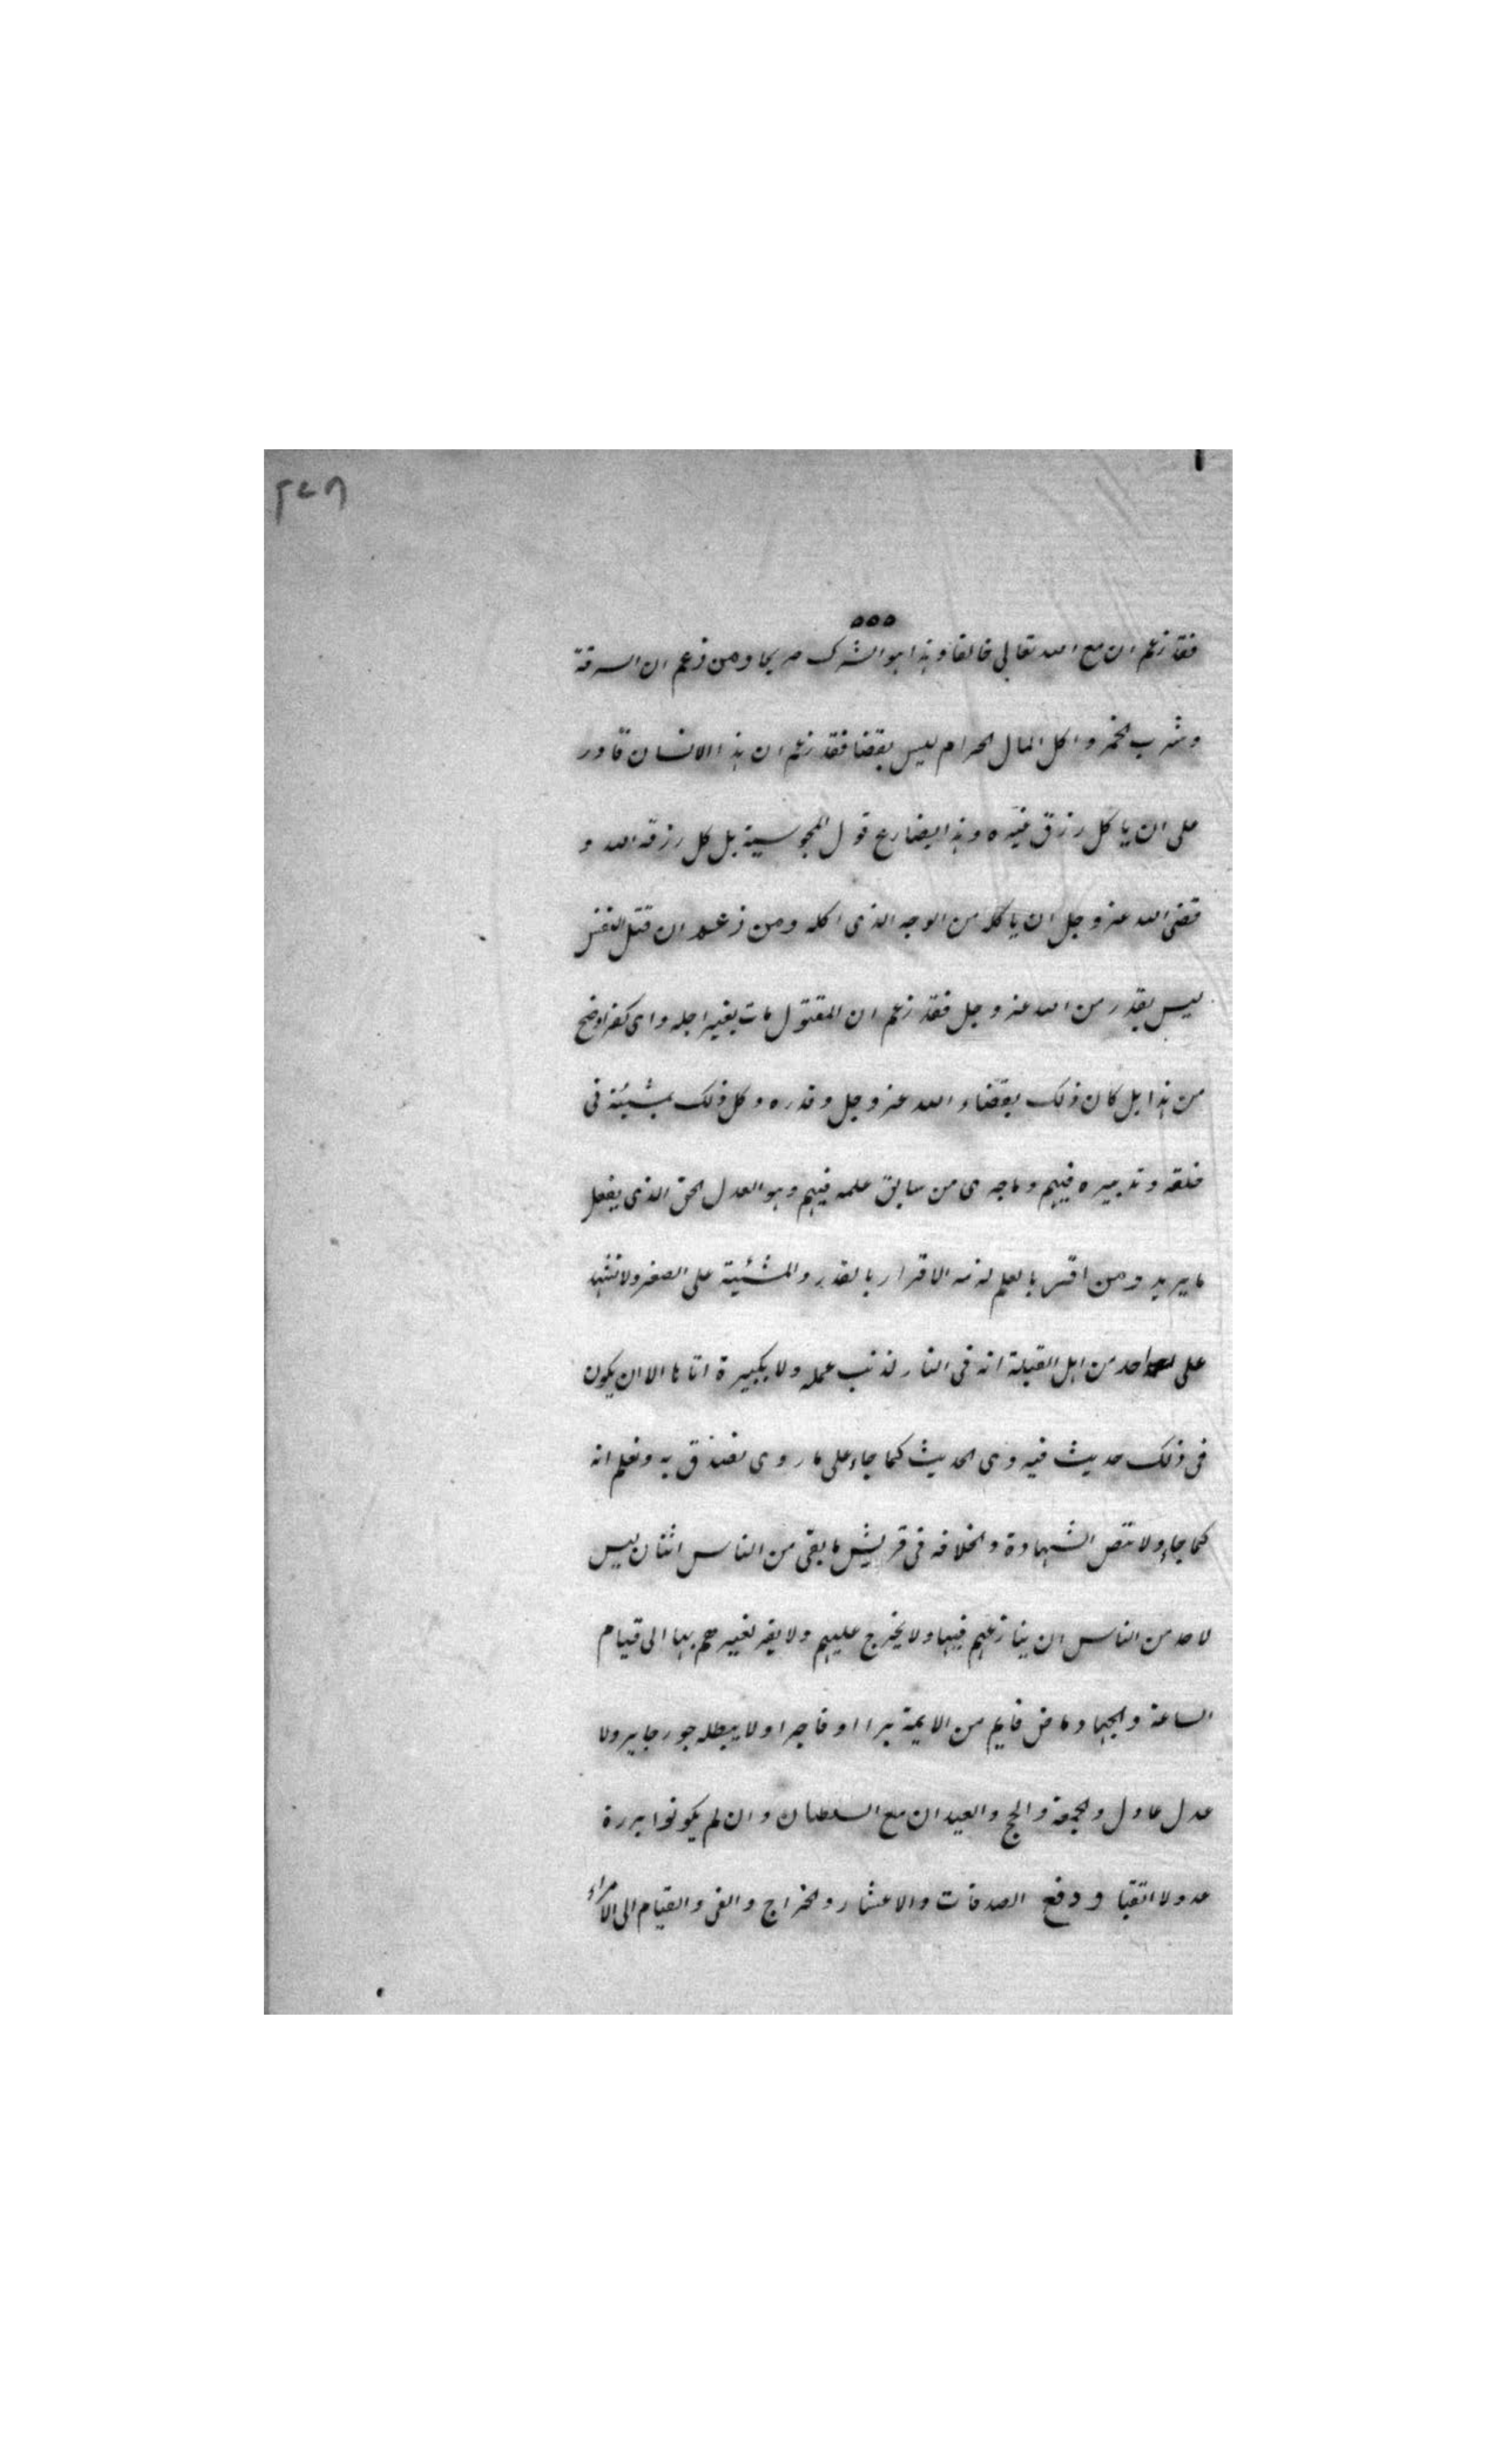 فقد زعم ان مع الله تعالى خالقا وهذا هو الشرك صريحا ومن زعم ان السرقة
وشرب الخمر واكل المال الحرام ليس بقضا فقد زعم ان هذا الانسان قادر
على ان ياكل رزق غيره وهذا يضارع قول المجوسية بل كل رزقه الله و
قضى الله عز وجل ان ياكله من الوجه الذى اكله ومن زعم ان قتل النفس
ليس بقدر من الله عز وجل فقد زعم ان المقتول مات بغير اجله واى كفر اوضح
من هذا بل كان ذلك بقضاء الله عز وجل وقدره وكل ذلك بمشيئة فى
خلقه وتدبيره فيهم وماجرى من سابق علمه فيهم وهو العدل الحق الذى يفعل
مايريد ومن اقر بالعلم لزمه الاقرار بالقدر والمشئية على الصغر ولا نشهد
على احد من اهل القبلة انه فى النار لذنب عمله ولا بكبيرة اتاها الا ان يكون
فى ذلك حديث فيروى الحديث كما جاء على ما روى نصدق به ونعلم انه
كما جاء ولا تنقص الشهادة والخلافه فى قريش مابقى من الناس اثنان ليس
لاحد من الناس ان ينازعهم فيها ولا يخرج عليهم ولا يقر لغيرهم بها الى قيام
الساعة والجهاد ماض قايم من الايمة برا او فاجرا ولا يبطله جور جاير ولا
عدل عادل والجمعة والحج والعيدان مع السلطان وان لم يكونوا بررة
عدولا اتقيا ودفع الصدقات والاعشار والخراج والفى والقيام الى الامراء